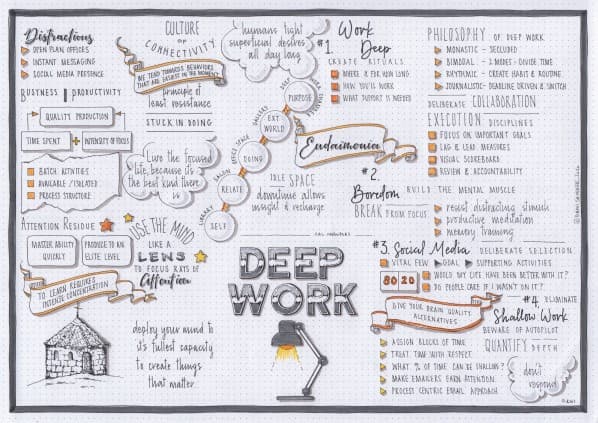 Distractions
OPEN PLAN OFFICES
INSTANT MESSAGING
SOCIAL MEDIA PRESENCE
BUSINESS ≠ PRODUCTIVITY
QUALITY PRODUCTION
TIME SPENT + INTENSITY OF FOCUS
BATCH ACTIVITIES
AVAILABLE / ISOLATED
PROCESS STRUCTURE
ATTENTION RESIDUE
MASTER ABILITY
QUICKLY
PRODUCE TO AN
ELITE LEVEL
TO LEARN REQUIRES
INTENSE CONCENTRATION
CULTURE
OF
CONNECTIVITY
WE TEND TOWARDS BEHAVIORS
THAT ARE EASIEST IN THE MOMENT
principle of
least resistance
STUCK IN DOING
Live the focused
life, because it's
the best kind there
is
USE THE MIND
LIKE A
LENS
TO FOCUS RAYS OF
Attention
deploy your mind to
it's fullest capacity
to create things
that matter
humans fight
superficial desires
all day long
PURPOSE
EXT
WORLD
DOING
RELATE
SELF
GALLERY
OFFICE SPACE
SALON
LIBRARY
Eudaimonia
IDLE SPACE
downtime allows
insight & recharge
CAL NEWPORT
DEEP
WORK
#1. Work
Deep
CREATE RITUALS
WHERE & FOR HOW LONG
HOW YOU'LL WORK
WHAT SUPPORT IS NEEDED
PHILOSOPHY OF DEEP WORK
MONASTIC - SECLUDED
BIMODAL - 2 MODES : DIVIDE TIME
RHYTHMIC - CREATE HABIT & ROUTINE
JOURNALISTIC - DEADLINE DRIVEN & SWITCH
DELIBERATE COLLABORATION
EXECUTION DISCIPLINES
FOCUS ON IMPORTANT GOALS
LAG & LEAD MEASURES
VISUAL SCOREBOARD
REVIEW & ACCOUNTABILITY
#2.
Boredom BUILD THE MENTAL MUSCLE
BREAK FROM FOCUS
resist distracting stimuli
productive meditation
memory training
#3. Social Media DELIBERATE SELECTION
VITAL FEW GOAL SUPPORTING ACTIVITIES
80 20
WOULD MY LIFE HAVE BEEN BETTER WITH IT?
DO PEOPLE CARE IF I WASN'T ON IT?
GIVE YOUR BRAIN QUALITY
ALTERNATIVES
#4. ELIMINATE
Shallow Work
BEWARE OF AUTOPILOT
QUANTIFY DEPTH
ASSIGN BLOCKS OF TIME
TREAT TIME WITH RESPECT
WHAT % OF TIME CAN BE SHALLOW?
MAKE EMAILERS EARN ATTENTION
PROCESS CENTRIC EMAIL APPROACH
don't
respond